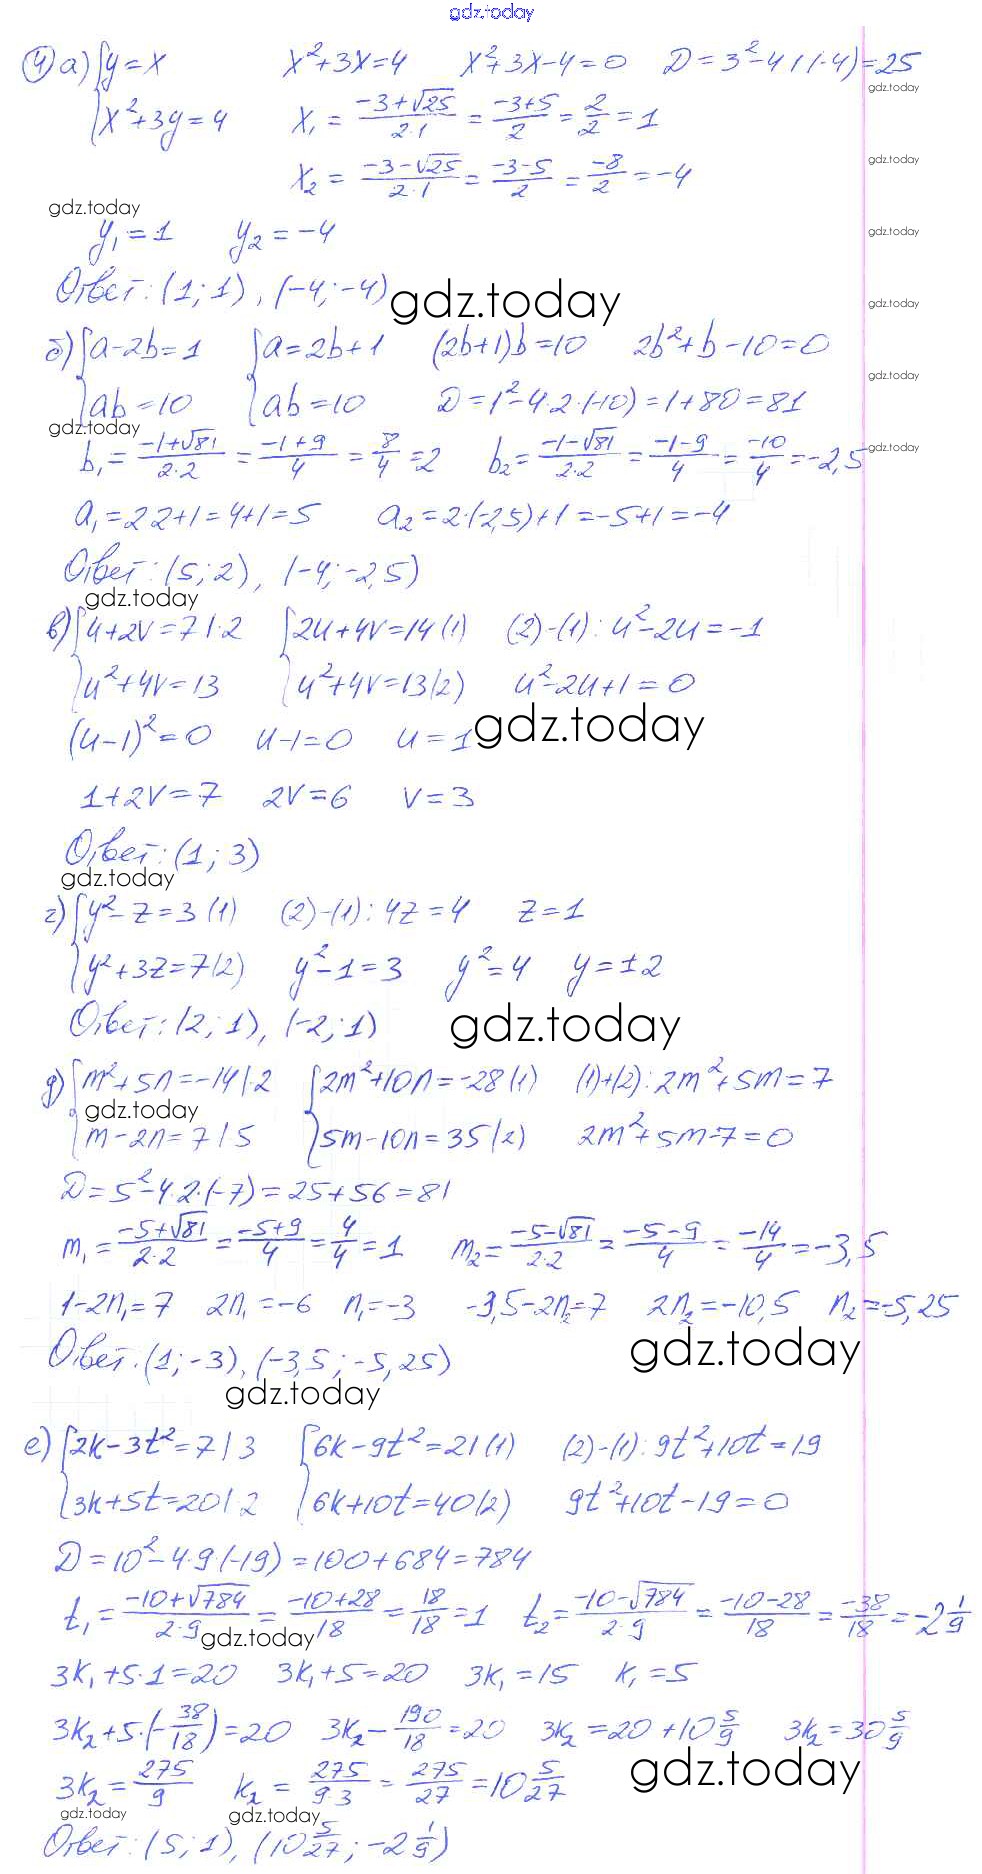 gdz.today
4) а) {y=x   x²+3x=4   x²+3x-4=0   D=3²-4·1·(-4)=25
gdz.today
{x²+3y=4   x₁ = (-3+√25)/(2·1) = (-3+5)/2 = 2/2 = 1
gdz.today
x₂ = (-3-√25)/(2·1) = (-3-5)/2 = -8/2 = -4
gdz.today
y₁=1   y₂=-4   gdz.today
Ответ: (1;1), (-4;-4) gdz.today gdz.today
б) {a-2b=1   {a=2b+1   (2b+1)b=10   2b²+b-10=0
gdz.today
{ab=10   {ab=10   D=1²-4·2·(-10)=1+80=81
gdz.today
b₁ = (-1+√81)/(2·2) = (-1+9)/4 = 8/4 = 2   b₂ = (-1-√81)/(2·2) = (-1-9)/4 = -10/4 = -2,5 gdz.today
a₁=2·2+1=4+1=5   a₂=2·(-2,5)+1=-5+1=-4
Ответ: (5;2), (-4;-2,5)
gdz.today
в) {u+2v=7 |·2   {2u+4v=14 (1)   (2)-(1): u²-2u=-1
{u²+4v=13   {u²+4v=13 (2)   u²-2u+1=0
(u-1)²=0   u-1=0   u=1 gdz.today
1+2v=7   2v=6   v=3
Ответ: (1;3)
gdz.today
г) {y²-z=3 (1)   (2)-(1): 4z=4   z=1
{y²+3z=7 (2)   y²-1=3   y²=4   y=±2
Ответ: (2;1), (-2;1) gdz.today
д) {m²+5n=-14 |·2   {2m²+10n=-28 (1)   (1)+(2): 2m²+5m=7
gdz.today
{m-2n=7 |·5   {5m-10n=35 (2)   2m²+5m-7=0
D=5²-4·2·(-7)=25+56=81
m₁ = (-5+√81)/(2·2) = (-5+9)/4 = 4/4 = 1   m₂ = (-5-√81)/(2·2) = (-5-9)/4 = -14/4 = -3,5
1-2n₁=7   2n₁=-6   n₁=-3   -3,5-2n₂=7   2n₂=-10,5   n₂=-5,25
Ответ: (1;-3), (-3,5;-5,25) gdz.today
gdz.today
е) {2k-3t²=7 |·3   {6k-9t²=21 (1)   (2)-(1): 9t²+10t=19
{3k+5t=20 |·2   {6k+10t=40 (2)   9t²+10t-19=0
D=10²-4·9·(-19)=100+684=784
t₁ = (-10+√784)/(2·9) = (-10+28)/18 = 18/18 = 1   t₂ = (-10-√784)/(2·9) = (-10-28)/18 = -38/18 = -2 1/9
gdz.today
3k₁+5·1=20   3k₁+5=20   3k₁=15   k₁=5
3k₂+5·(-38/18)=20   3k₂-190/18=20   3k₂=20+10 5/9   3k₂=30 5/9
3k₂ = 275/9   k₂ = 275/(9·3) = 275/27 = 10 5/27 gdz.today
gdz.today gdz.today
Ответ: (5;1), (10 5/27; -2 1/9)